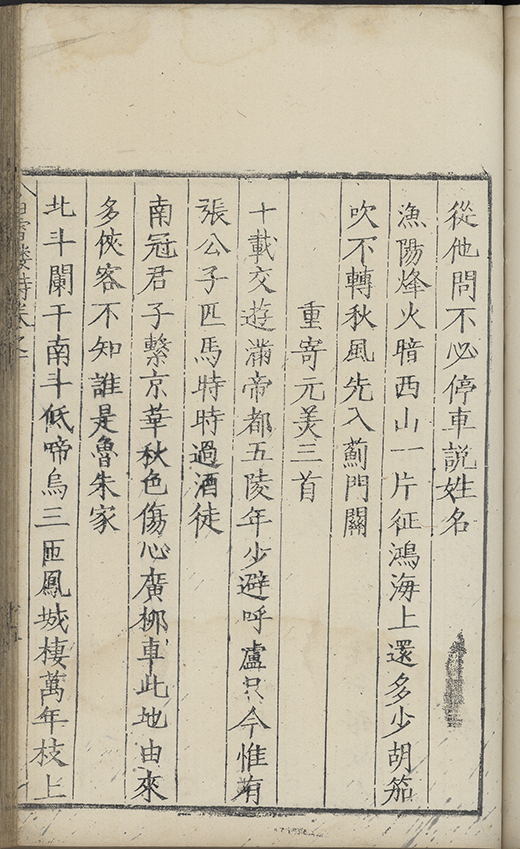 從他問不必停車說姓名
漁陽烽火暗西山一片征鴻海上還多少胡笳
吹不轉秋風先入薊門關
重寄元美三首
十載交遊滿帝都五陵年少避呼盧只今惟有
張公子匹馬時時過酒徒
南冠君子繫京華秋色傷心廣柳車此地由來
多俠客不知誰是魯朱家
北斗闌干南斗低啼烏三匝鳳城棲萬年枝上
白雪樓詩卷之